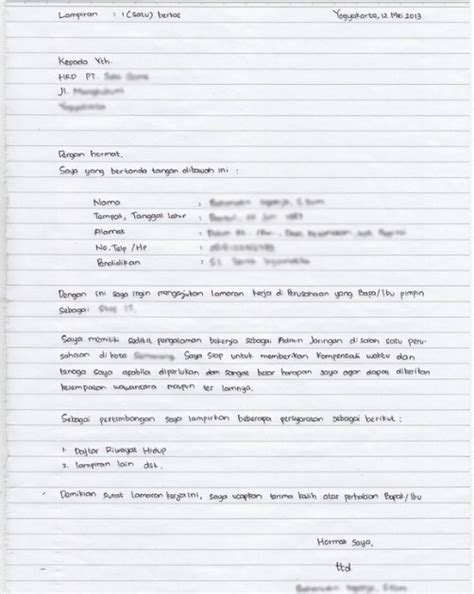 Lampiran : 1 (Satu) berkas Yogyakarta, 12 Mei 2013
Kepada Yth.
HRD PT.
Jl.
Dengan hormat,
Saya yang bertanda tangan dibawah ini :
Nama :
Tempat, Tanggal lahir :
Alamat :
No. Telp / HP :
Pendidikan :
Dengan ini saya ingin mengajukan lamaran kerja di Perusahaan yang Bapa/Ibu pimpin
sebagai
Saya memiliki sedikit pengalaman bekerja sebagai Admin Jaringan di salah satu peru-
sahaan di kota Saya siap untuk memberikan kompensasi waktu dan
tenaga saya apabila diperlukan dan sangat besar harapan saya agar dapat diberikan
kesempatan wawancara maupun tes lainnya.
Sebagai pertimbangan saya lampirkan beberapa persyaratan sebagai berikut :
1. Daftar Riwayat Hidup
2. lampiran lain dst.
Demikian surat lamaran kerja ini, saya ucapkan terima kasih atas perhatian Bapak/Ibu
Hormat Saya,
ttd